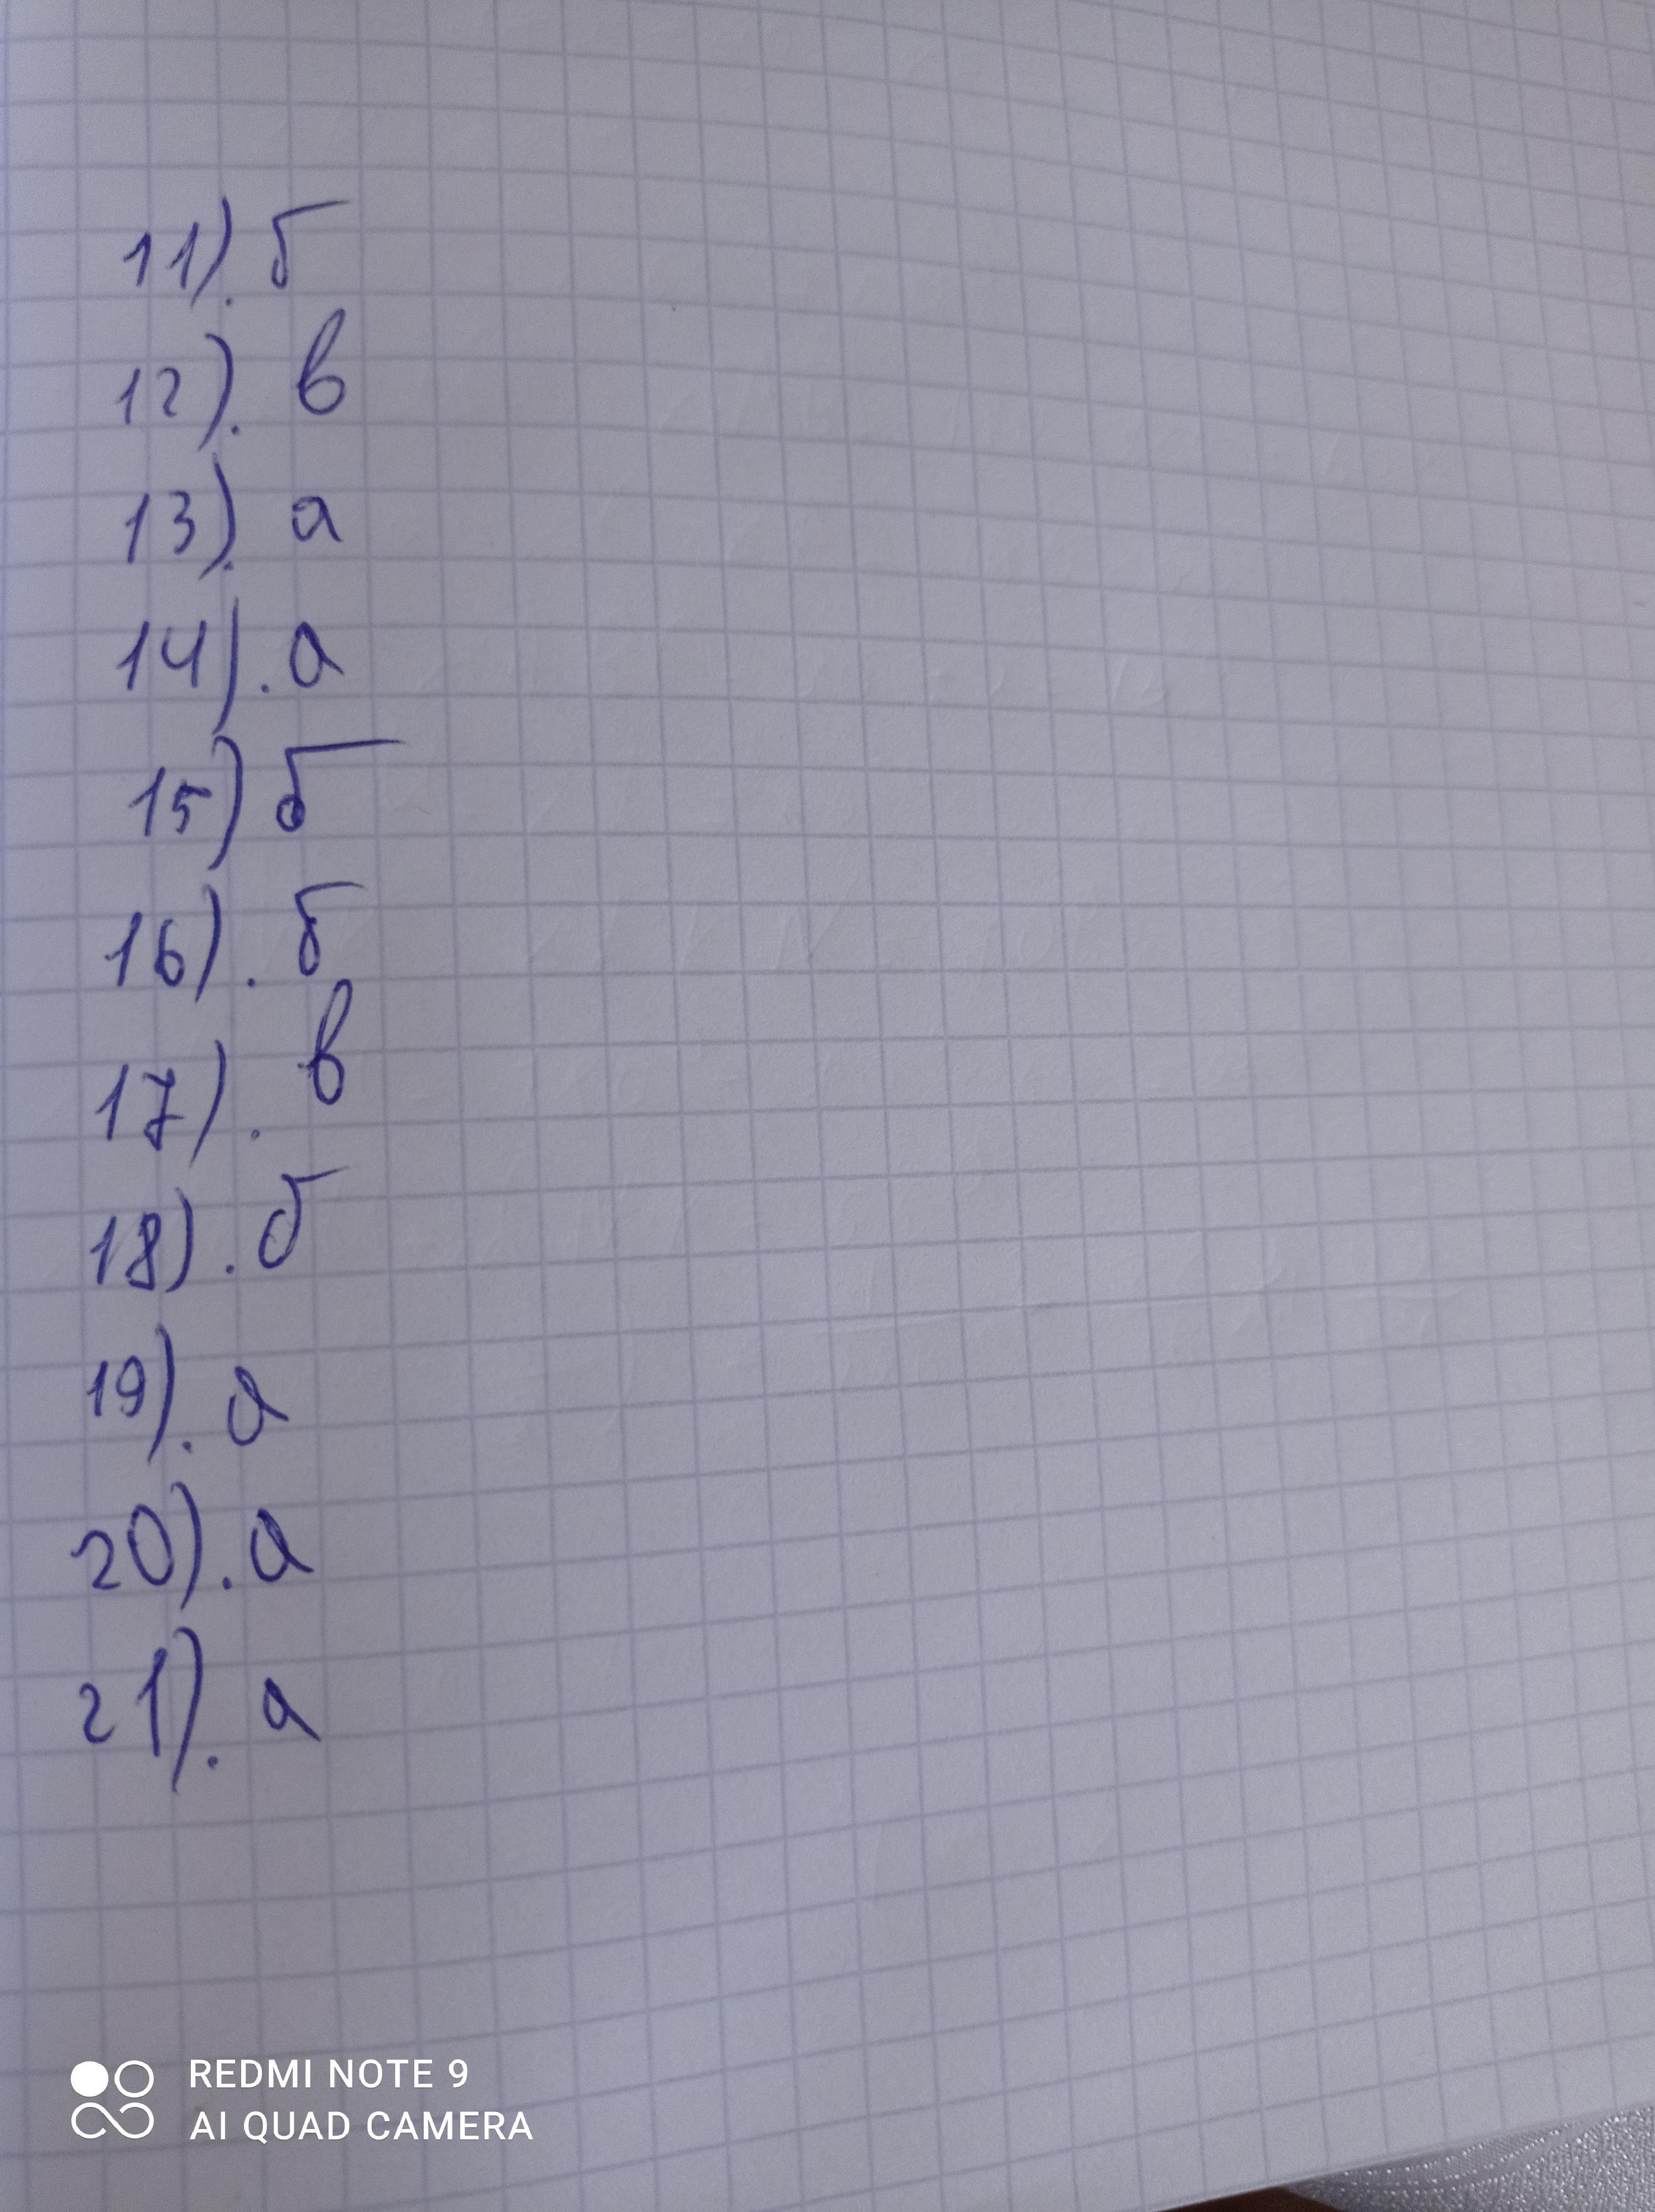 11). б
12). в
13). а
14). а
15) б
16). б
17). в
18). б
19). а
20). а
21). а
REDMI NOTE 9
AI QUAD CAMERA